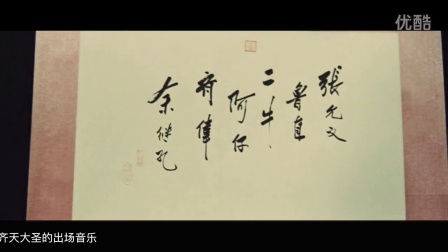 張允文
魯直
二牛
阿仔
府偉
余継孔
齐天大圣的出场音乐
优酷